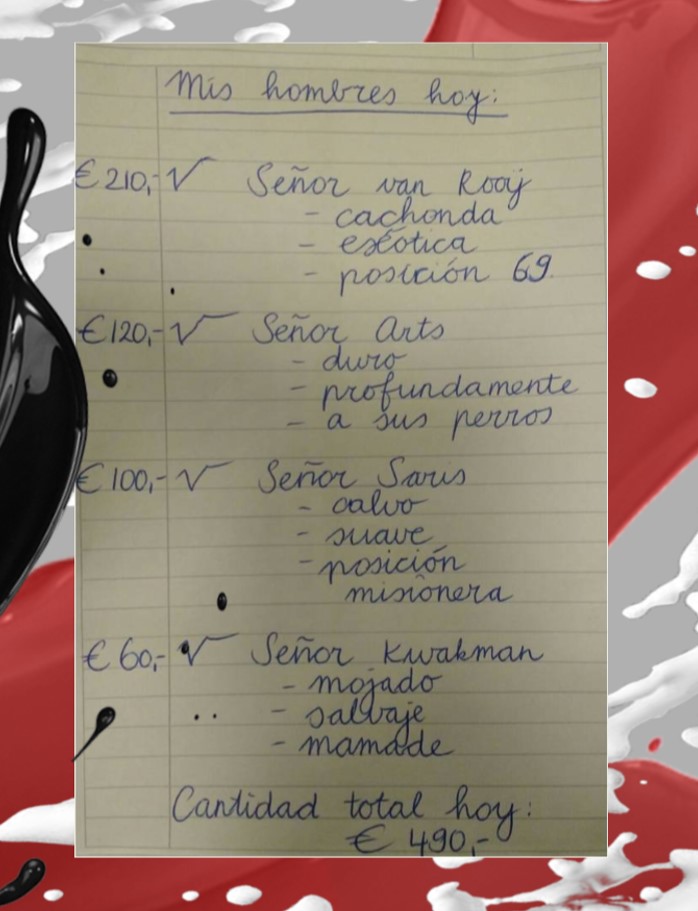 Mis hombres hoy:
€ 210,- √ Señor van Rooij
- cachonda
- exótica
- posición 69.
€ 120,- √ Señor Arts
- duro
- profundamente
- a sus perros
€ 100,- √ Señor Saris
- calvo
- suave
- posición
misionera
€ 60,- √ Señor Kwakman
- mojado
- salvaje
- mamade
Cantidad total hoy:
€ 490,-